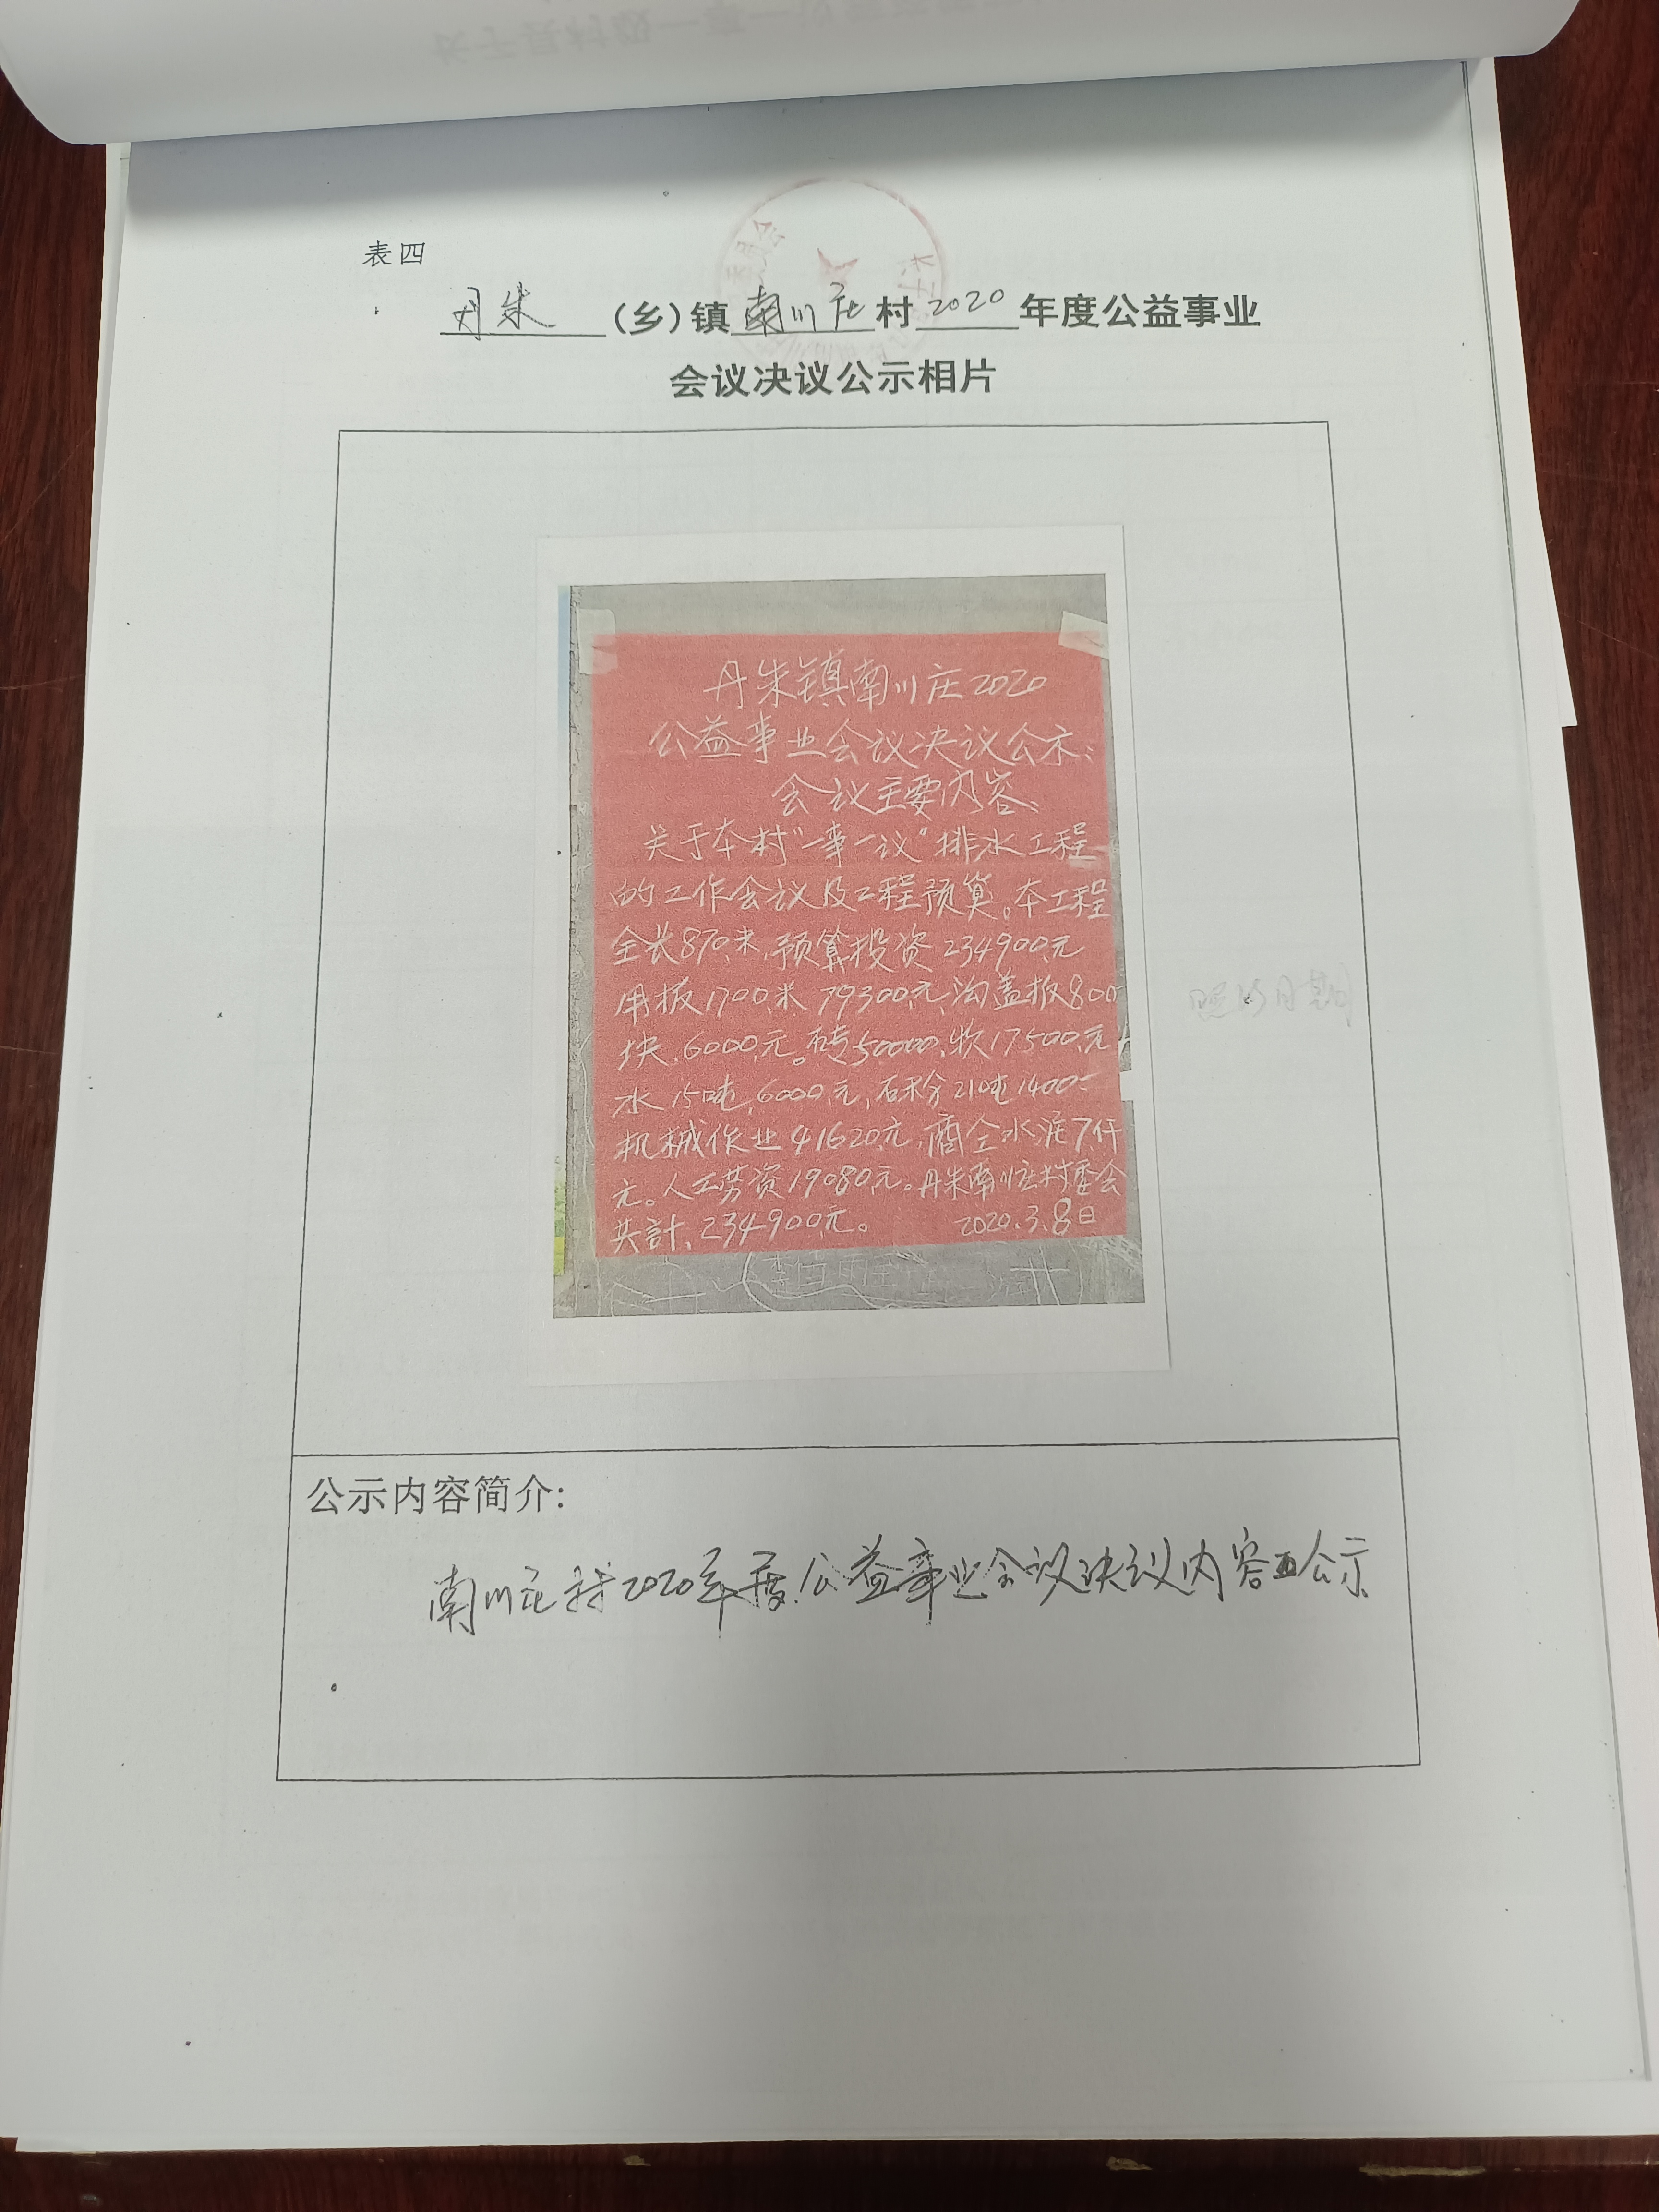 表四
丹朱(乡)镇南川庄村2020年度公益事业
会议决议公示相片
丹朱镇南川庄2020
公益事业会议决议公示:
会议主要内容、
关于本村"一事一议"排水工程
的工作会议及工程预算。本工程
全长870米,预算投资234900元
用板1700米79300元,沟盖板800
块、6000元。砖50000、17500元
水15吨、6000元,石粉21吨1400
机械作业41620元,商仝水泥7仟
元。人工劳资19080元。丹朱南川庄村委会
共計、234900元。 2020.3.8日
公示内容简介:
南川庄村2020年度公益事业会议决议内容公示